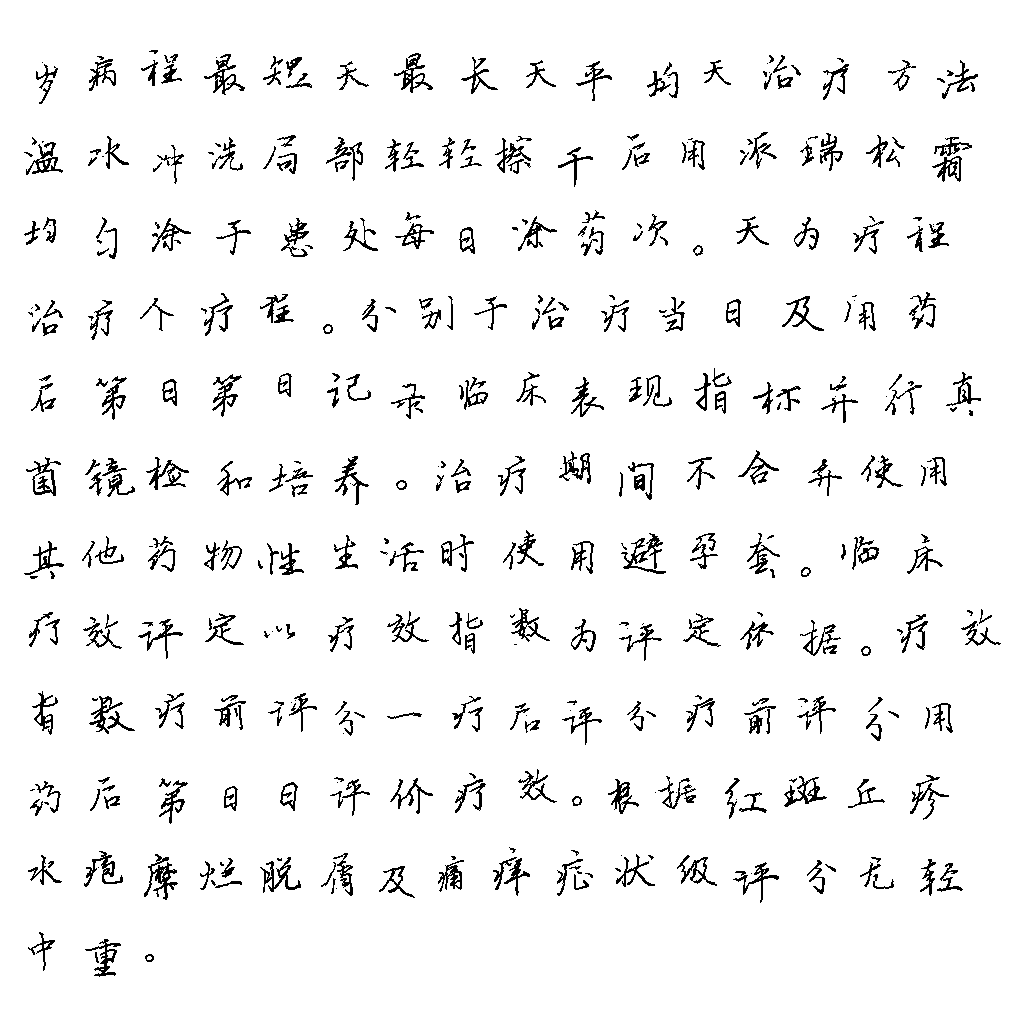 岁病程最短天最长天平均天治疗方法
温水冲洗局部轻轻擦干后用派瑞松霜
均匀涂于患处每日涂药次。天为疗程
治疗个疗程。分别于治疗当日及用药
后第日第日记录临床表现指标并行真
菌镜检和培养。治疗期间不合并使用
其他药物性生活时使用避孕套。临床
疗效评定以疗效指数为评定依据。疗效
指数疗前评分一疗后评分疗前评分用
药后第日日评价疗效。根据红斑丘疹
水疱糜烂脱屑及痛痒症状级评分无轻
中重。